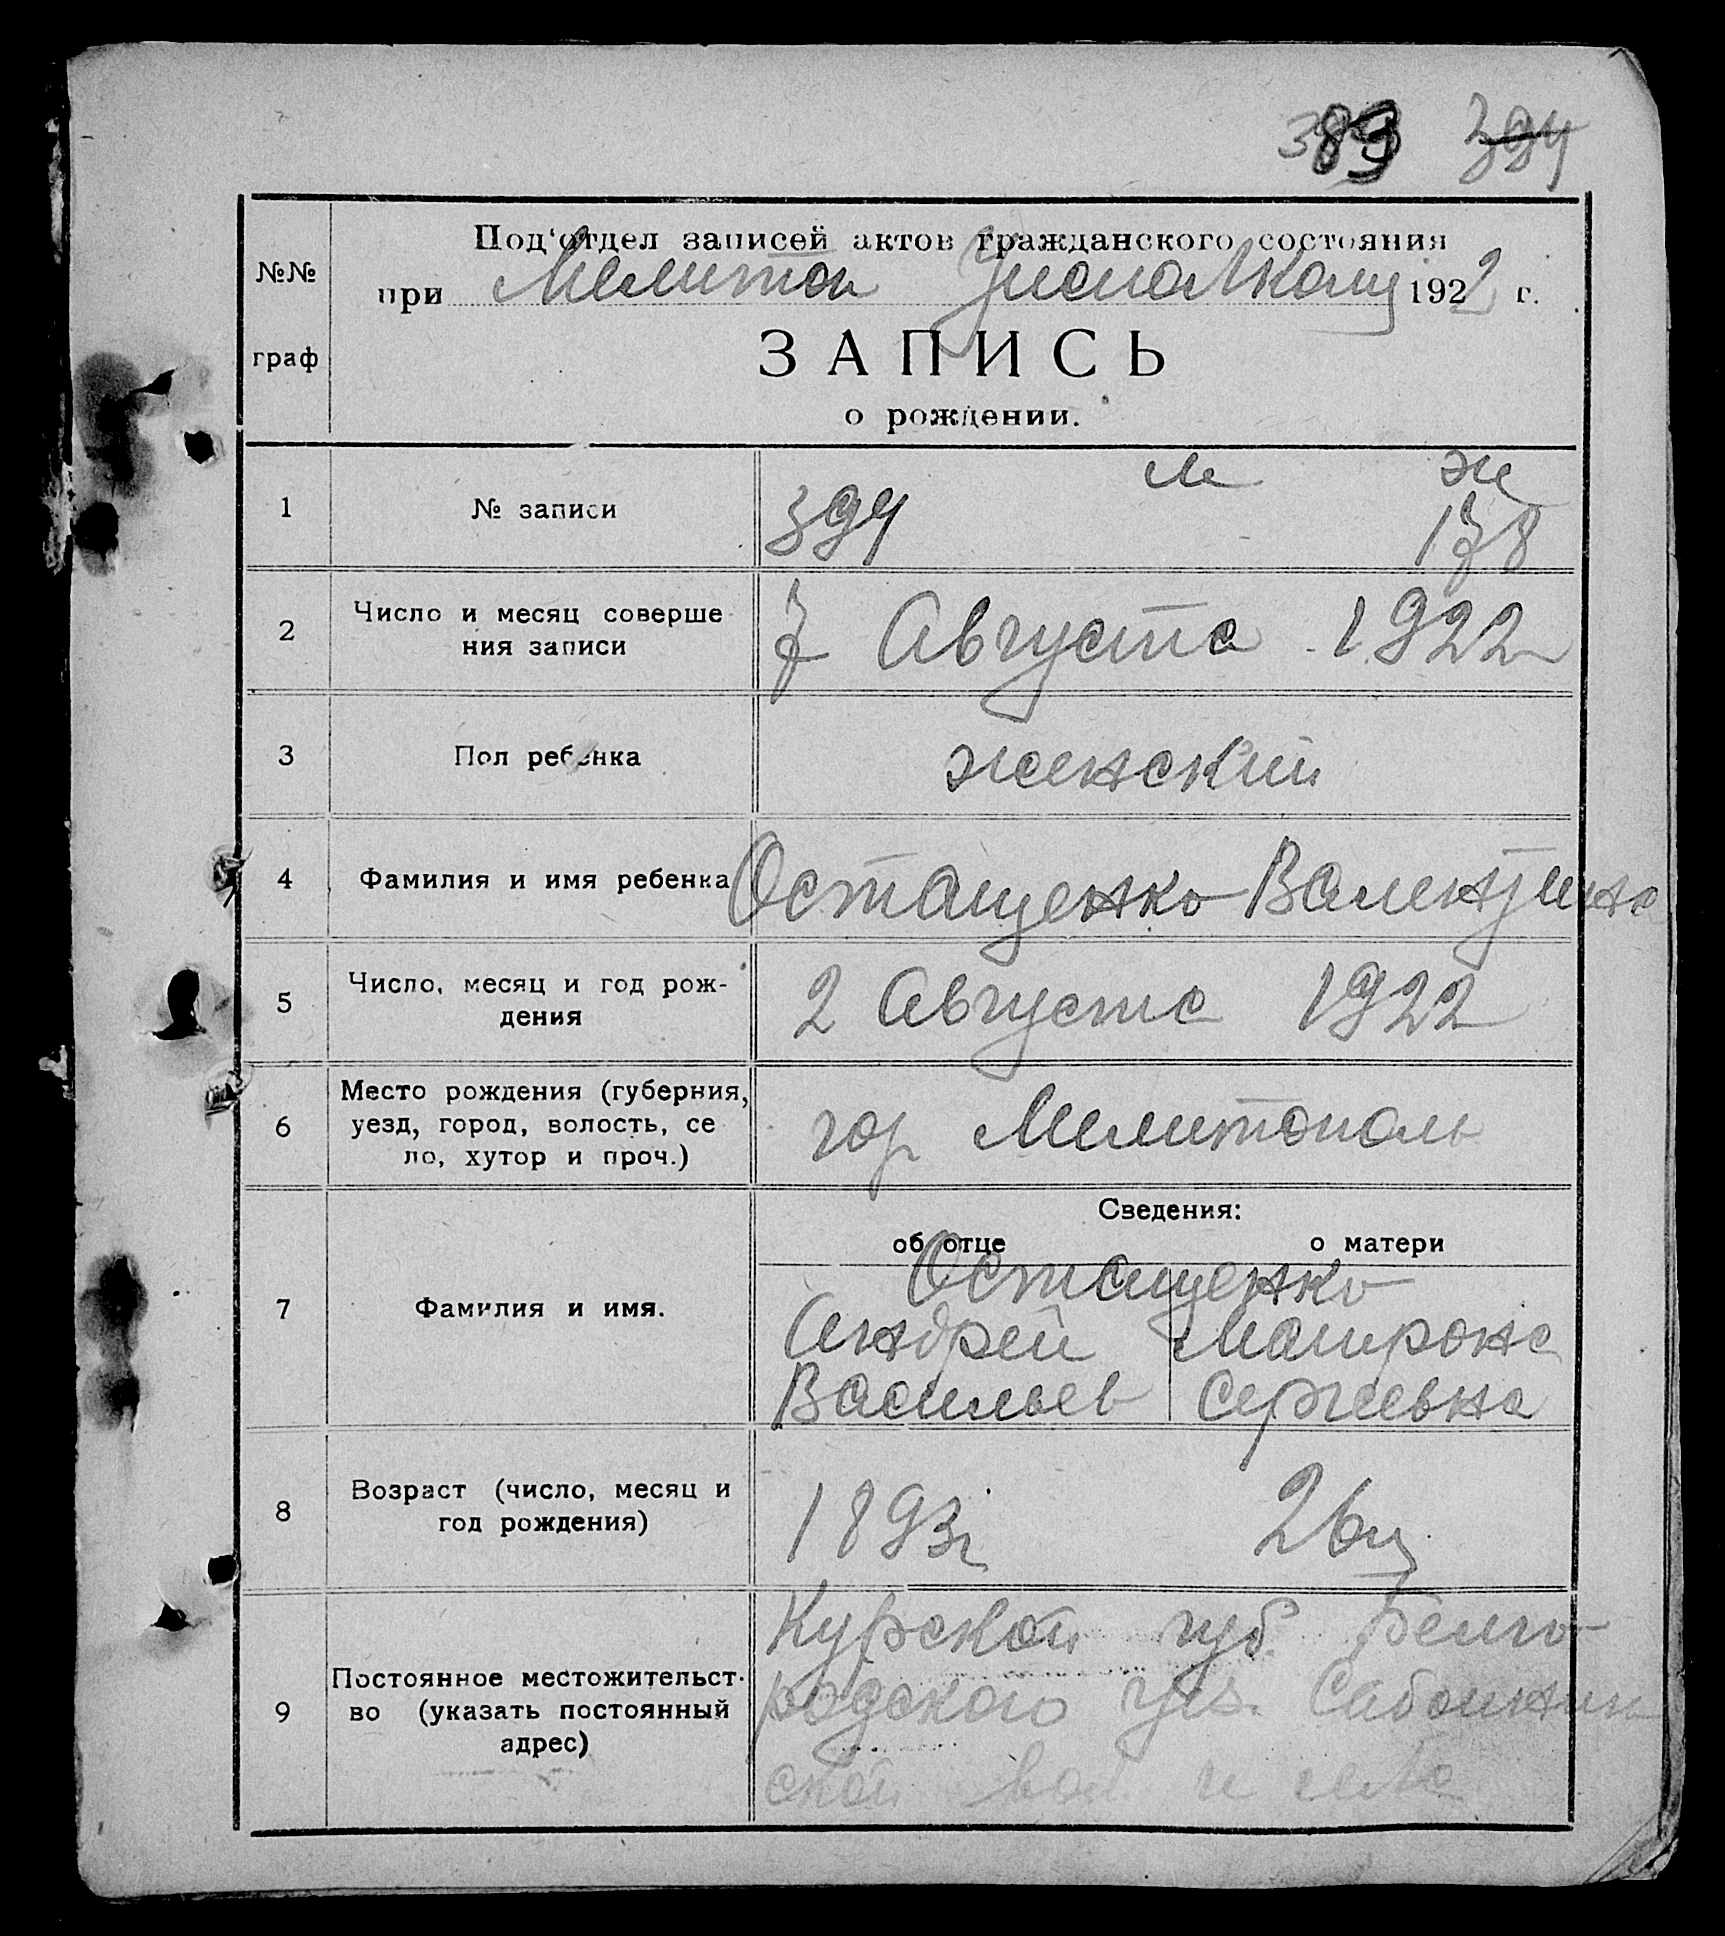 383 394
Под'отдел записей актов гражданского состояния
№№
при Мелитоп Уисполкому 1922 г.
граф
ЗАПИСЬ
о рождении.
м ж
1 № записи 394 178
2 Число и месяц соверше
ния записи
7 Августа 1922
3 Пол ребенка женский
4 Фамилия и имя ребенка Остащенко Валентина
5 Число, месяц и год рож-
дения
2 Августа 1922
6 Место рождения (губерния,
уезд, город, волость, се
ло, хутор и проч.)
гор Мелитополь
Сведения:
об отце о матери
7 Фамилия и имя.
Остащенко
Андрей Матрона
Васильев Сергеевна
8 Возраст (число, месяц и
год рождения)
1893г 26л
9 Постоянное местожительст-
во (указать постоянный
адрес)
Курской губ Белго-
родского уез. Сабынин
ской вол и села